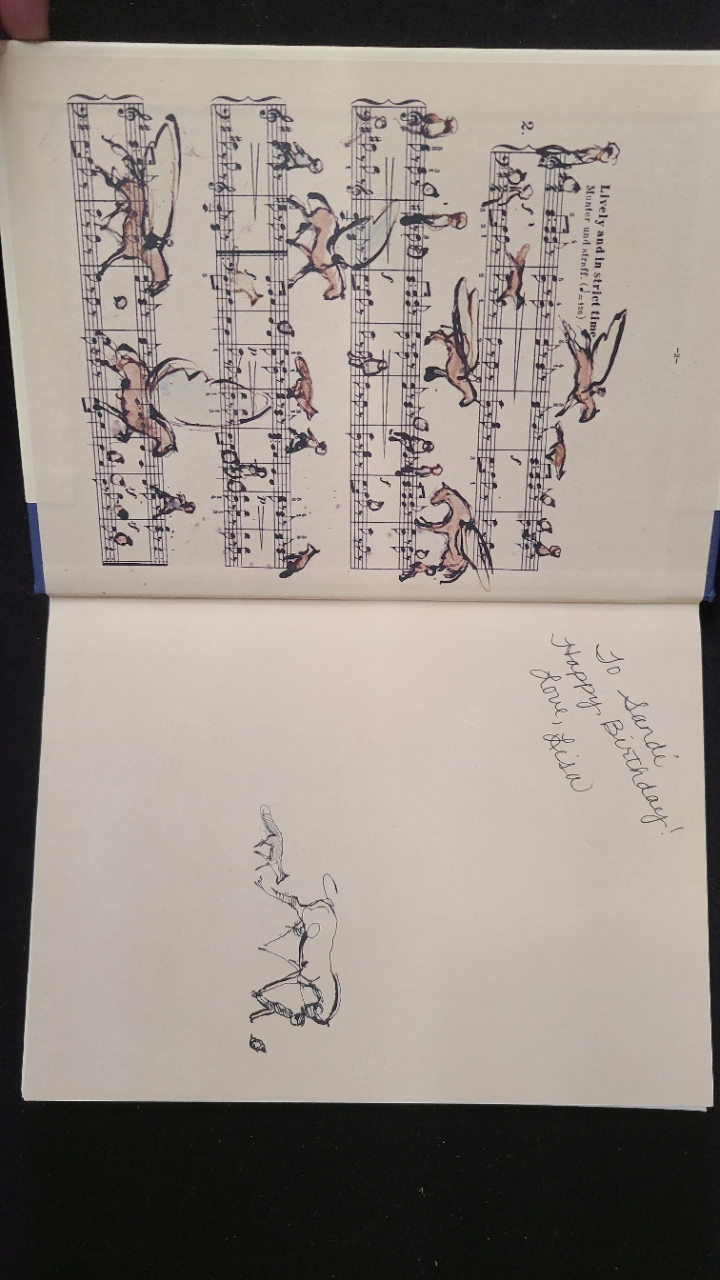 -2-
Lively and in strict time
Munter und straff. (♩=126)
2.
To Sandi
Happy Birthday!
Love, Lisa